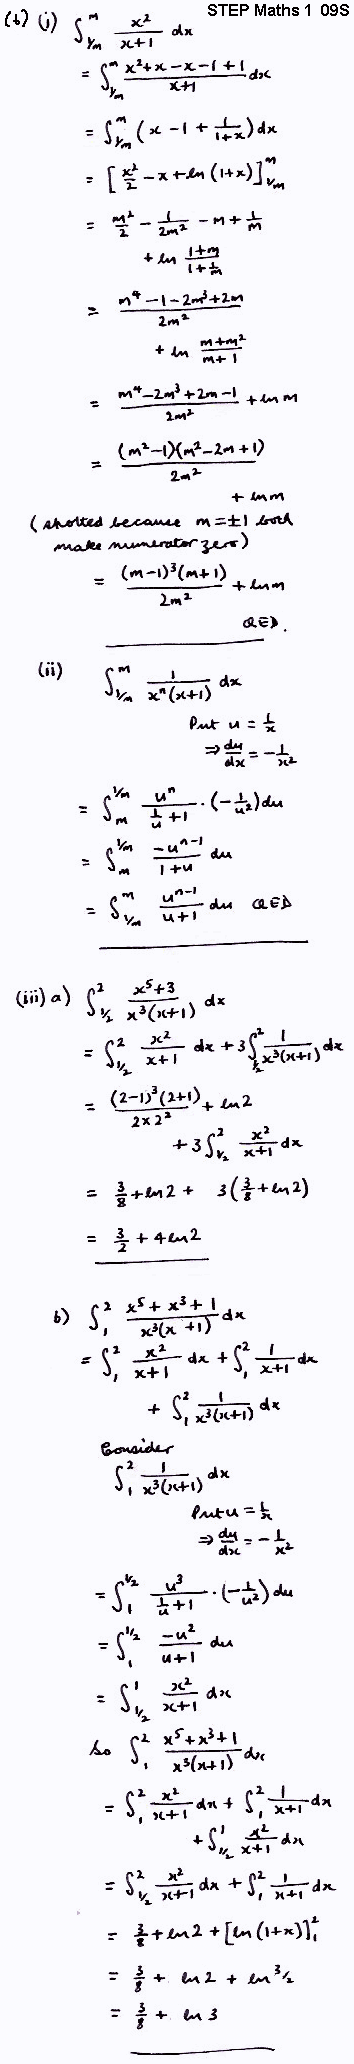 STEP Maths 1 09S
(6) (i) ∫_{1/m}^{m} x²/(x+1) dx
= ∫_{1/m}^{m} (x²+x-x-1+1)/(x+1) dx
= ∫_{1/m}^{m} (x-1+1/(1+x)) dx
= [x²/2 - x + ln(1+x)]_{1/m}^{m}
= m²/2 - 1/(2m²) - m + 1/m
+ ln (1+m)/(1+1/m)
= (m⁴-1-2m³+2m)/(2m²)
+ ln (m+m²)/(m+1)
= (m⁴-2m³+2m-1)/(2m²) + ln m
= (m²-1)(m²-2m+1)/(2m²)
+ ln m
(spotted because m=±1 both
make numerator zero)
= (m-1)³(m+1)/(2m²) + ln m
QED.
(ii) ∫_{1/m}^{m} 1/(xⁿ(x+1)) dx
Put u = 1/x
⇒ du/dx = -1/x²
= ∫_{m}^{1/m} uⁿ/(1/u+1) · (-1/u²) du
= ∫_{m}^{1/m} -uⁿ⁻¹/(1+u) du
= ∫_{1/m}^{m} uⁿ⁻¹/(u+1) du QED
(iii) a) ∫_{1/2}^{2} (x⁵+3)/(x³(x+1)) dx
= ∫_{1/2}^{2} x²/(x+1) dx + 3∫_{1/2}^{2} 1/(x³(x+1)) dx
= (2-1)³(2+1)/(2×2²) + ln 2
+ 3∫_{1/2}^{2} x²/(x+1) dx
= 3/8 + ln 2 + 3(3/8 + ln 2)
= 3/2 + 4 ln 2
b) ∫_{1}^{2} (x⁵+x³+1)/(x³(x+1)) dx
= ∫_{1}^{2} x²/(x+1) dx + ∫_{1}^{2} 1/(x+1) dx
+ ∫_{1}^{2} 1/(x³(x+1)) dx
Consider
∫_{1}^{2} 1/(x³(x+1)) dx
Put u = 1/x
⇒ du/dx = -1/x²
= ∫_{1}^{1/2} u³/(1/u+1) · (-1/u²) du
= ∫_{1}^{1/2} -u²/(u+1) du
= ∫_{1/2}^{1} x²/(x+1) dx
So ∫_{1}^{2} (x⁵+x³+1)/(x³(x+1)) dx
= ∫_{1}^{2} x²/(x+1) dx + ∫_{1}^{2} 1/(x+1) dx
+ ∫_{1/2}^{1} x²/(x+1) dx
= ∫_{1/2}^{2} x²/(x+1) dx + ∫_{1}^{2} 1/(x+1) dx
= 3/8 + ln 2 + [ln(1+x)]_{1}^{2}
= 3/8 + ln 2 + ln 3/2
= 3/8 + ln 3